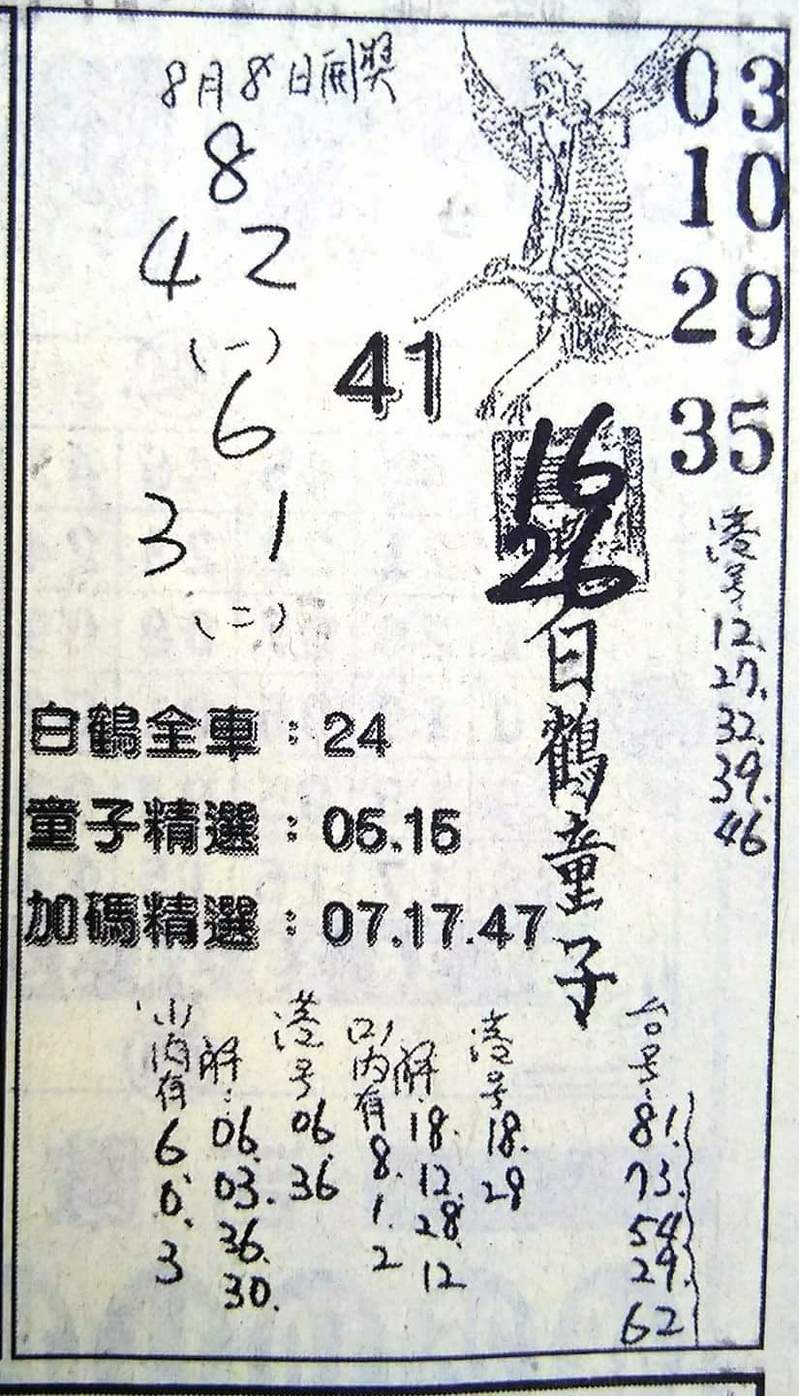 8月8日開獎
8
4 2
(一)
6
3 1
(二)
41
03
10
29
35
16
26
白鶴童子
港号:
12.
27.
32.
39.
46
白鶴全車：24
童子精選：05.15
加碼精選：07.17.47
台号:
81.
73.
54
29.
62
港号
18.
29
解:
18.
12.
28.
12
(二)内有
8.
1.
2
港号
06.
36
解:
06.
03.
36.
30.
(一)内有
6.
0.
3